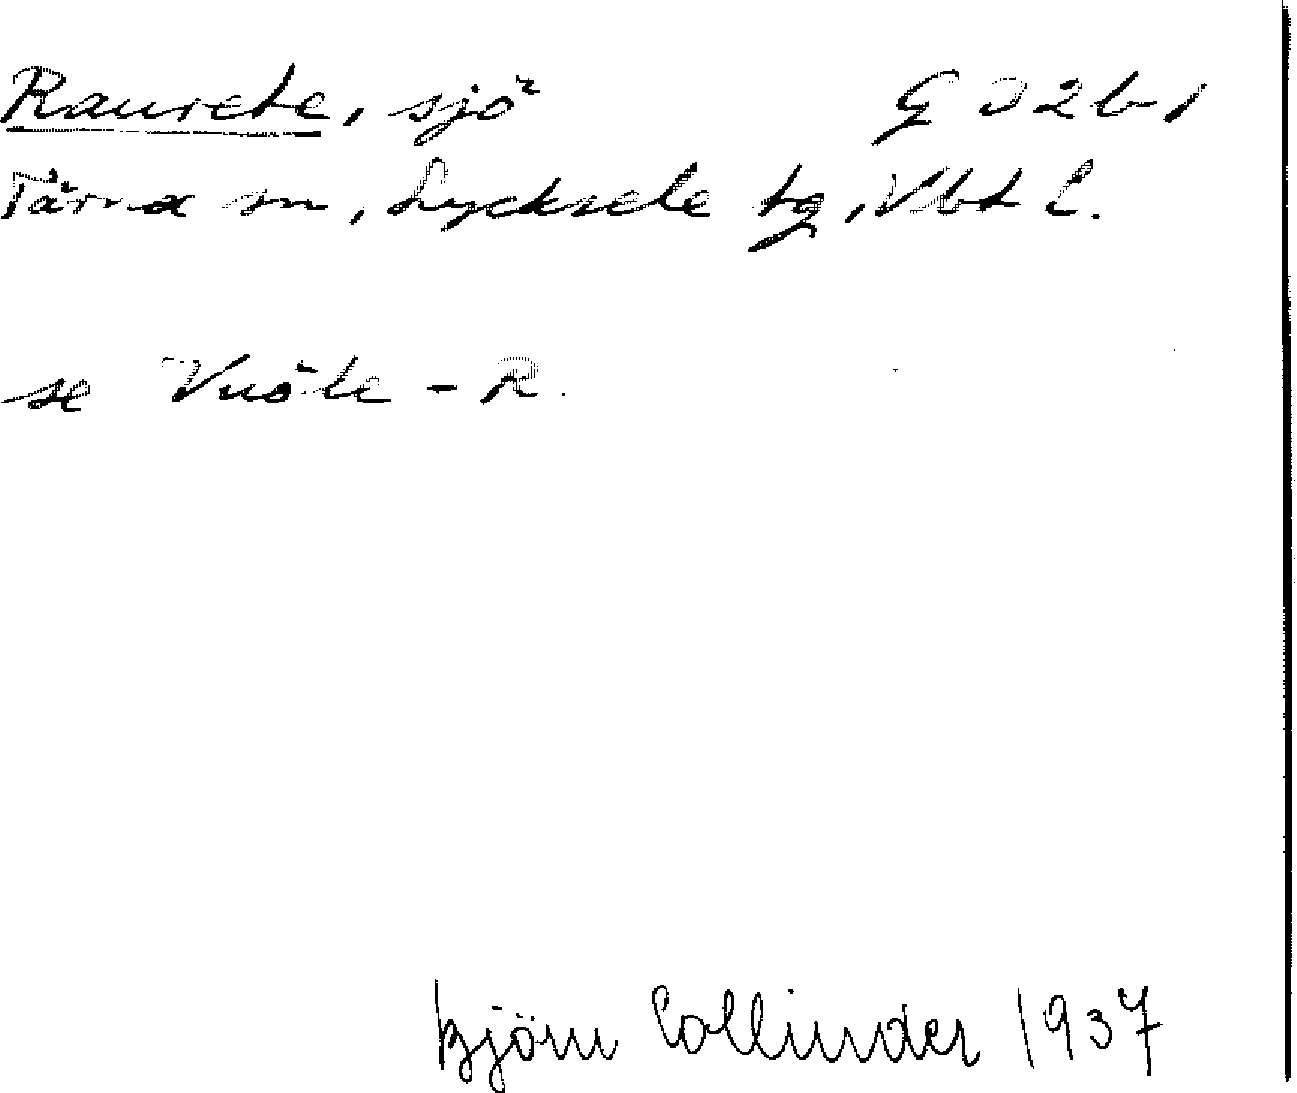 Raurete, sjö G D 2 b 1
Tärna sn, Lycksele tg, Vbt l.
se Vuöle - R.
Björn Collinder 1937